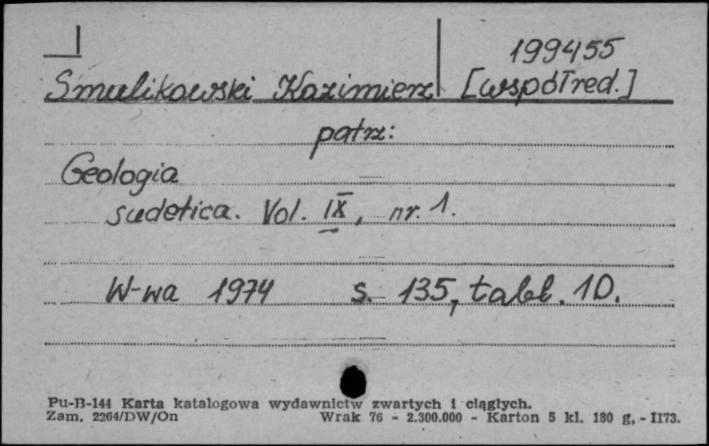 199455
Smulikowski Kazimierz [współred.]
patrz:
Geologia
sudetica. Vol. IX, nr. 1.
W-wa 1974 s. 135, tabl. 10.
Pu-B-144 Karta katalogowa wydawnictw zwartych i ciągłych.
Zam. 2264/DW/On Wrak 76 - 2.300.000 - Karton 5 kl. 180 g, - II73.